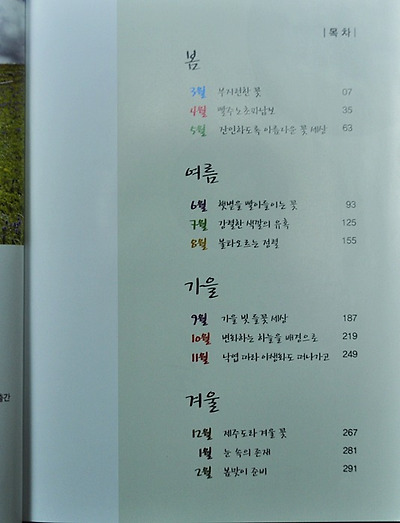 |목 차|
봄
3월 부지런한 꽃 07
4월 빨주노초파남보 35
5월 잔인하도록 아름다운 꽃 세상 63
여름
6월 햇볕을 빨아들이는 꽃 93
7월 강렬한 색깔의 유혹 125
8월 불타오르는 정열 155
가을
9월 가을 빛 들꽃 세상 187
10월 변화하는 하늘을 배경으로 219
11월 낙엽 따라 야생화도 떠나가고 249
겨울
12월 제주도라 겨울 꽃 267
1월 눈 속의 존재 281
2월 봄맞이 준비 291
출간